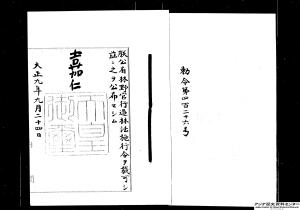 勅令第四百二十六号
朕公有林野官行造林法施行令ヲ裁可シ
茲ニ之ヲ公布セシム
嘉仁
天皇
御璽
大正九年九月二十四日
アジア歴史資料センター